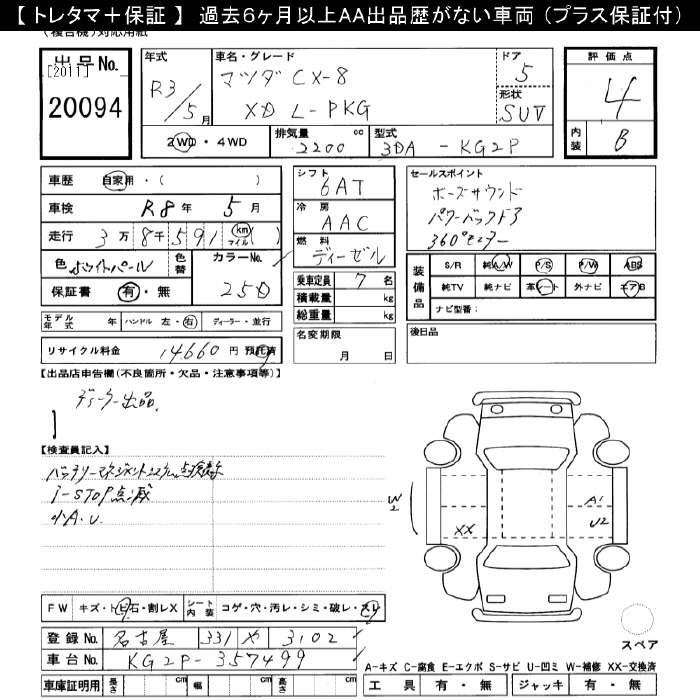 【 トレタマ＋保証 】 過去６ヶ月以上ＡＡ出品歴がない車両（プラス保証付）
(複合機)対応用紙
出品No.
[2011]
20094
年式
R3/5月
車名・グレード
マツダ CX-8
XD L-PKG
ドア
5
形状
SUV
評価点
4
内装
B
2WD・4WD
排気量 cc
2200
型式
3DA - KG2P
車歴 自家用・( )
車検 R8年 5月
走行 3万8千591 km マイル ( )
色 ホワイトパール
色替
カラーNo.
25D
保証書 有・無
モデル年式 年 ハンドル 左・右 ディーラー・並行
リサイクル料金 14660円 預託済
シフト
6AT
冷房
AAC
燃料
ディーゼル
乗車定員 7 名
積載量 kg
総重量 kg
名変期限
月 日
セールスポイント
ボーズサウンド
パワーバックドア
360°モニター
装備品
S/R 純A/W P/S P/W ABS
純TV 純ナビ 革シート 外ナビ エアB
ナビ型番：
後日品
【出品店申告欄(不良箇所・欠品・注意事項等)】
ディーラー出品
【検査員記入】
バッテリーマネジメントシステム点検表示
i-STOP点滅
小A.U.
W2
XX
A1
U2
FW キズ・トビ石・割レX シート内装 コゲ・穴・汚レ・シミ・破レ・スレ
登録No. 名古屋 331 や 3102
車台No. KG2P-357499
車庫証明用 長さ cm 幅 cm 高さ cm
スペア
A-キズ C-腐食 E-エクボ S-サビ U-凹ミ W-補修 XX-交換済
工具 有・無 ジャッキ 有・無